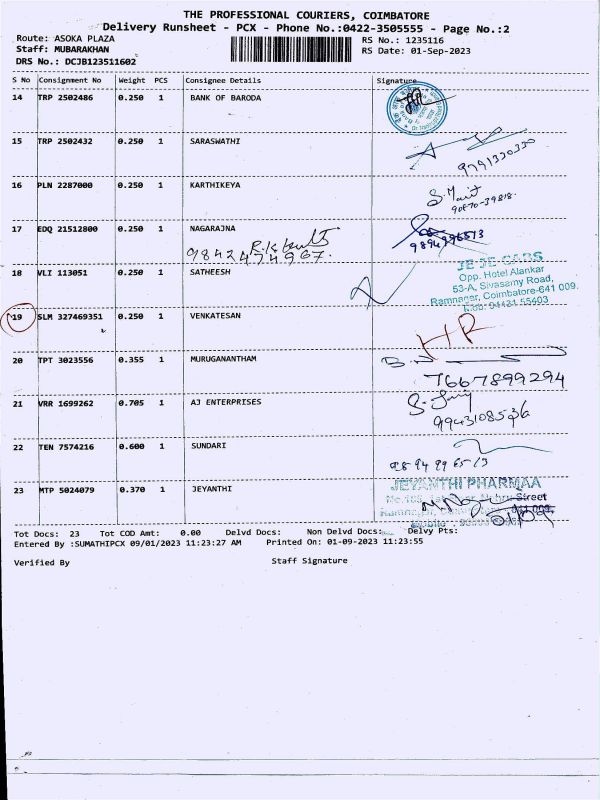 THE PROFESSIONAL COURIERS, COIMBATORE
Delivery Runsheet - PCX - Phone No.:0422-3505555 - Page No.:2
Route: ASOKA PLAZA
RS No.: 1235116
Staff: MUBARAKHAN
RS Date: 01-Sep-2023
DRS No.: DCJB123511602
S No Consignment No Weight PCS Consignee Details Signature
14 TRP 2502486 0.250 1 BANK OF BARODA
15 TRP 2502432 0.250 1 SARASWATHI
9791330330
16 PLN 2287000 0.250 1 KARTHIKEYA
90870-39818.
17 EDQ 21512800 0.250 1 NAGARAJNA
9842474967.
9894996513
18 VLI 113051 0.250 1 SATHEESH
JE JE CARS
Opp. Hotel Alankar
53-A, Sivasamy Road,
Ramnagar, Coimbatore-641 009.
19 SLM 327469351 0.250 1 VENKATESAN
HR
20 TPT 3023556 0.355 1 MURUGANANTHAM
7667899294
21 VRR 1699262 0.705 1 AJ ENTERPRISES
9943108536
22 TEN 7574216 0.600 1 SUNDARI
9894996513
23 MTP 5024079 0.370 1 JEYANTHI
JEYANTHI PHARMAA
Nehru Street
Tot Docs: 23 Tot COD Amt: 0.00 Delvd Docs: Non Delvd Docs: Delvy Pts:
Entered By :SUMATHIPCX 09/01/2023 11:23:27 AM Printed On: 01-09-2023 11:23:55
Verified By Staff Signature